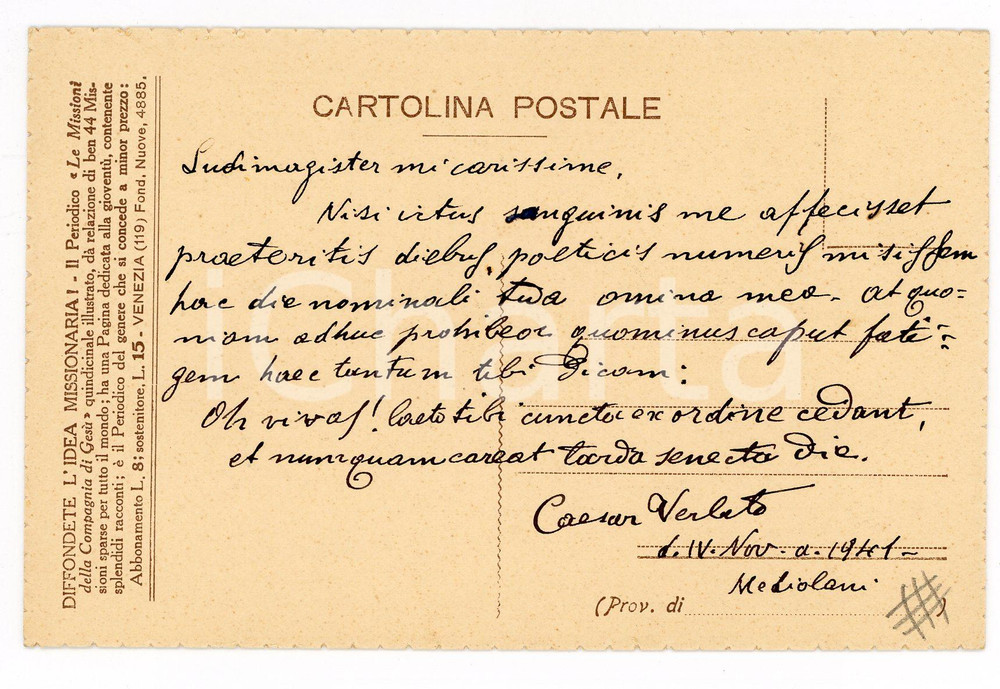 DIFFONDETE L'IDEA MISSIONARIA! - Il Periodico « Le Missioni
della Compagnia di Gesù » quindicinale illustrato, dà relazione di ben 44 Mis-
sioni sparse per tutto il mondo; ha una Pagina dedicata alla gioventù, contenente
splendidi racconti; è il Periodico del genere che si concede a minor prezzo:
Abbonamento L. 8; sostenitore, L. 15 - VENEZIA (119) Fond. Nuove, 4885.
CARTOLINA POSTALE
Ludimagister mi carissime,
Nisi ictus sanguinis me affecisset
praeteritis diebus, poeticis numeris misissem
hac die nominali tua omina mea. At quo=
niam adhuc prohibeor quominus caput fati=
gem haec tantum tibi dicam:
Oh vivas! laeto tibi cuncta ex ordine cedant,
et numquam careat tarda senecta die.
Caesar
d. IV. Nov. a. 1941 -
Mediolani
(Prov. di )
iCharta